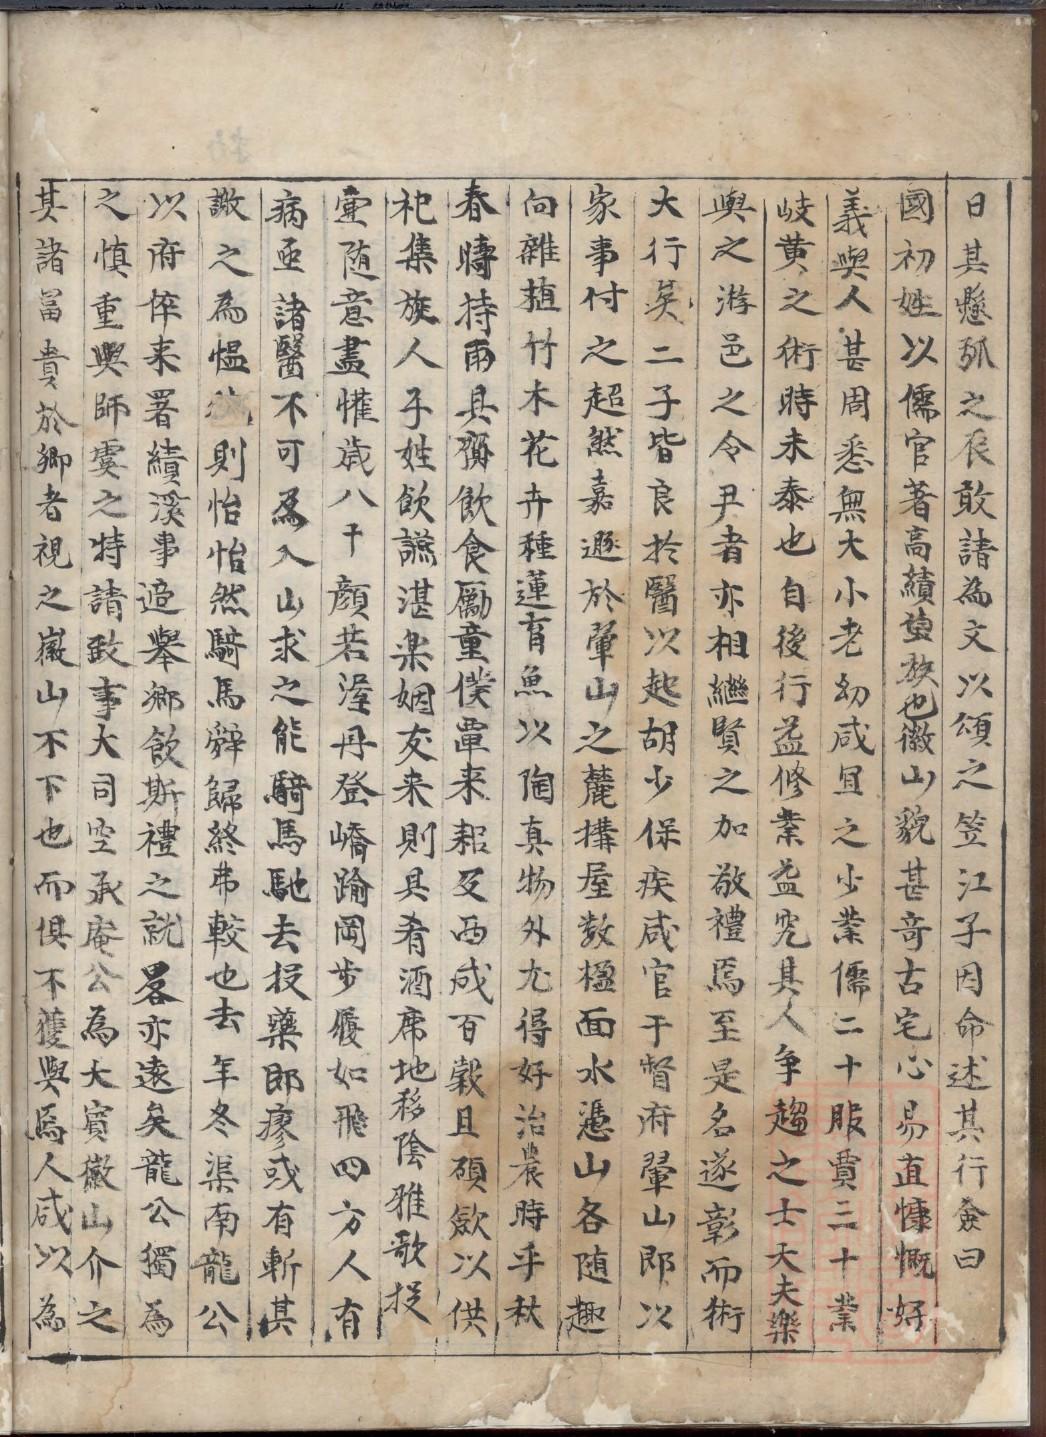 日其懸弧之辰敢請為文以頌之笠江子因命述其行僉曰
國初姓以儒官著高績望族也徽山貌甚奇古宅心易直慷慨好
義與人甚周悉無大小老幼咸宜之少業儒二十服賈三十業
岐黄之術時未泰也自後行益修業益究其人争趨之士大夫樂
與之游邑之令尹者亦相繼賢之加敬禮焉至是名遂彰而術
大行矣二子皆良於醫以起胡少保疾咸官于督府暈山即以
家事付之超然嘉遯於暈山之麓搆屋数楹面水憑山各随趣
向雜植竹木花卉種蓮育魚以陶真物外尤得好治農時乎秋
春疇持雨具賷飲食勵童僕單来耜及西成百穀且碩歛以供
祀集族人子姓飲讌湛楽姻友来則具肴酒席地移陰雅歌投
壷随意盡懽歳八十顔若渥丹登嶠踰岡步履如飛四方人有
病亟諸醫不可為入山求之能騎馬馳去投藥即瘳或有斬其
謝之為愠則怡怡然騎馬辤歸終弗較也去年冬渠南龍公
以府倅来署績溪事追舉鄉飲斯禮之就畧亦遠矣龍公獨為
之慎重與師雯之特請致事大司空承庵公為大賔徽山介之
其諸冨貴於鄉者視之嶶山不下也而俱不獲與焉人咸以為